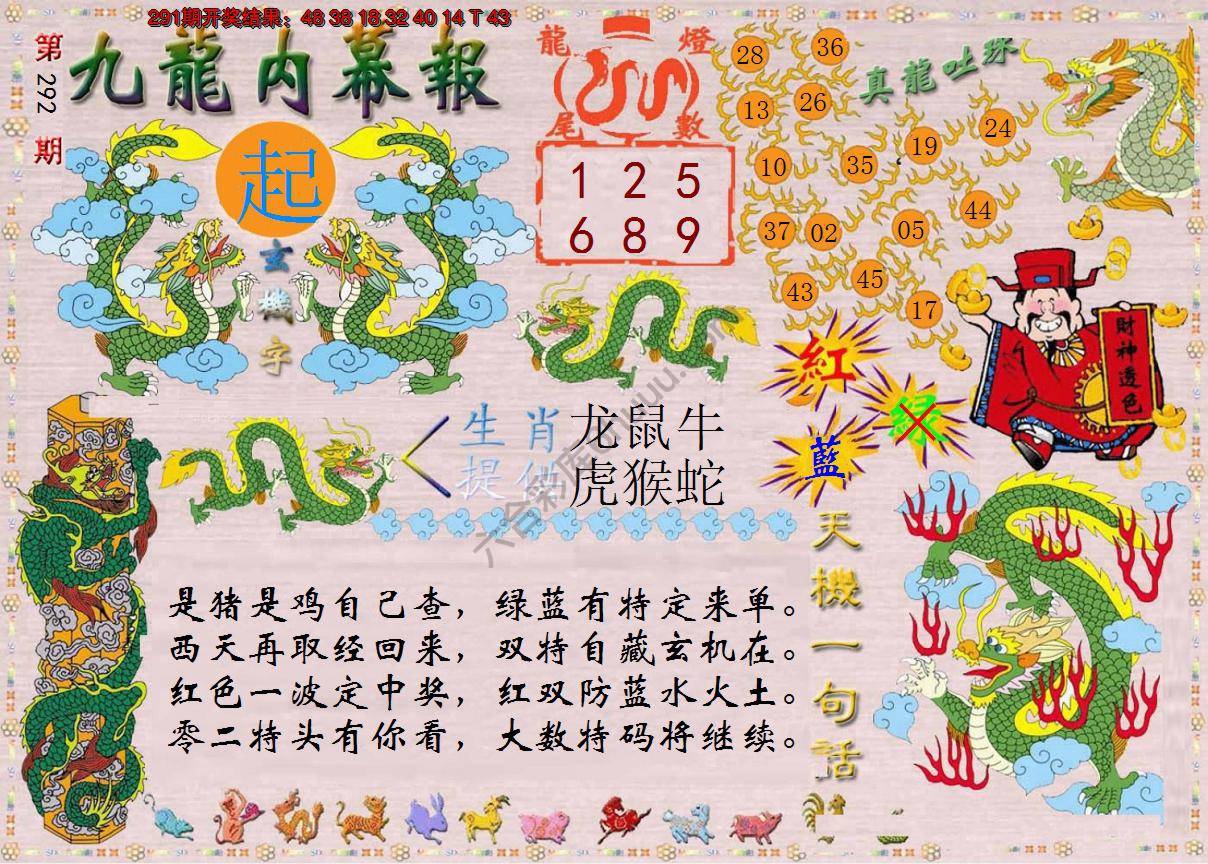 291期开奖结果：48 38 18 32 40 14 T 43
第292期
九龍内幕報
起
玄機字
龍燈
尾數
1 2 5
6 8 9
真龍吐珠
28 36
13 26
10 35 19 24
37 02 05 44
43 45 17
財神透色
紅
绿
藍
生肖
提供
龙鼠牛
虎猴蛇
天機一句話
是猪是鸡自己查，绿蓝有特定来单。
西天再取经回来，双特自藏玄机在。
红色一波定中奖，红双防蓝水火土。
零二特头有你看，大数特码将继续。